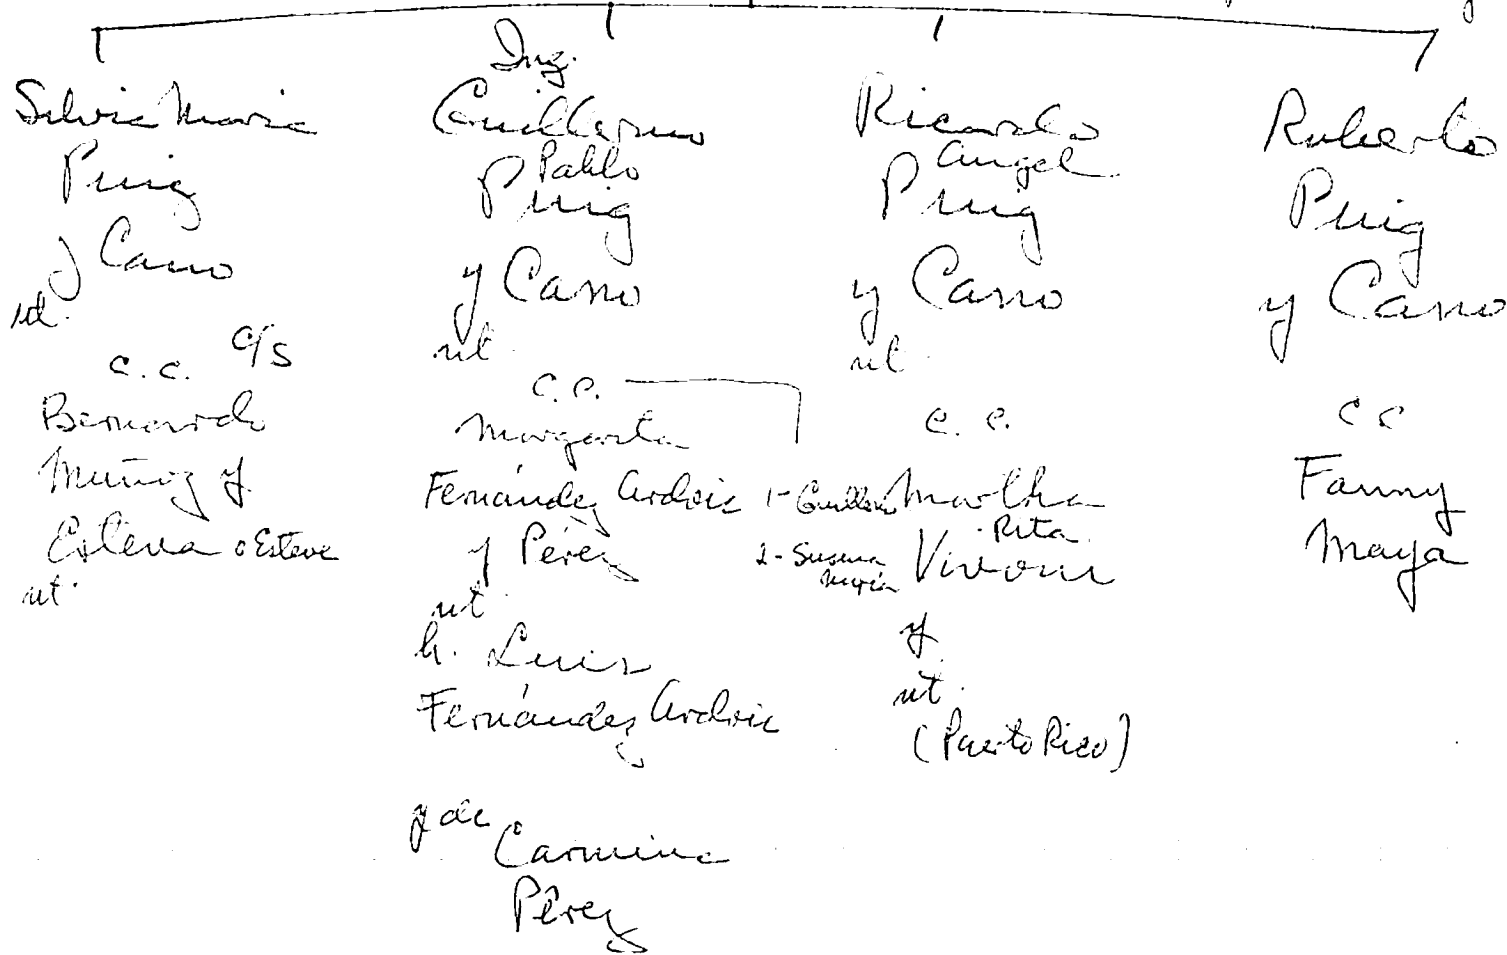 Silvia Maria
Puig
y Cano
nt.
c.c. c/s
Bernardo
Muñoz y
Esteva o Esteve
nt.
Ing.
Guillermo
Pablo
Puig
y Cano
nt.
c.c.
Margarita
Fernández Ardois
y Pérez
nt.
h. Luis
Fernández Ardois
y de
Carmina
Pérez
1- Guillermo
2- Susana
María
Ricardo
Angel
Puig
y Cano
nt.
c.c.
Martha
Rita
y
nt.
(Puerto Rico)
Roberto
Puig
y Cano
c c
Fanny
Maya